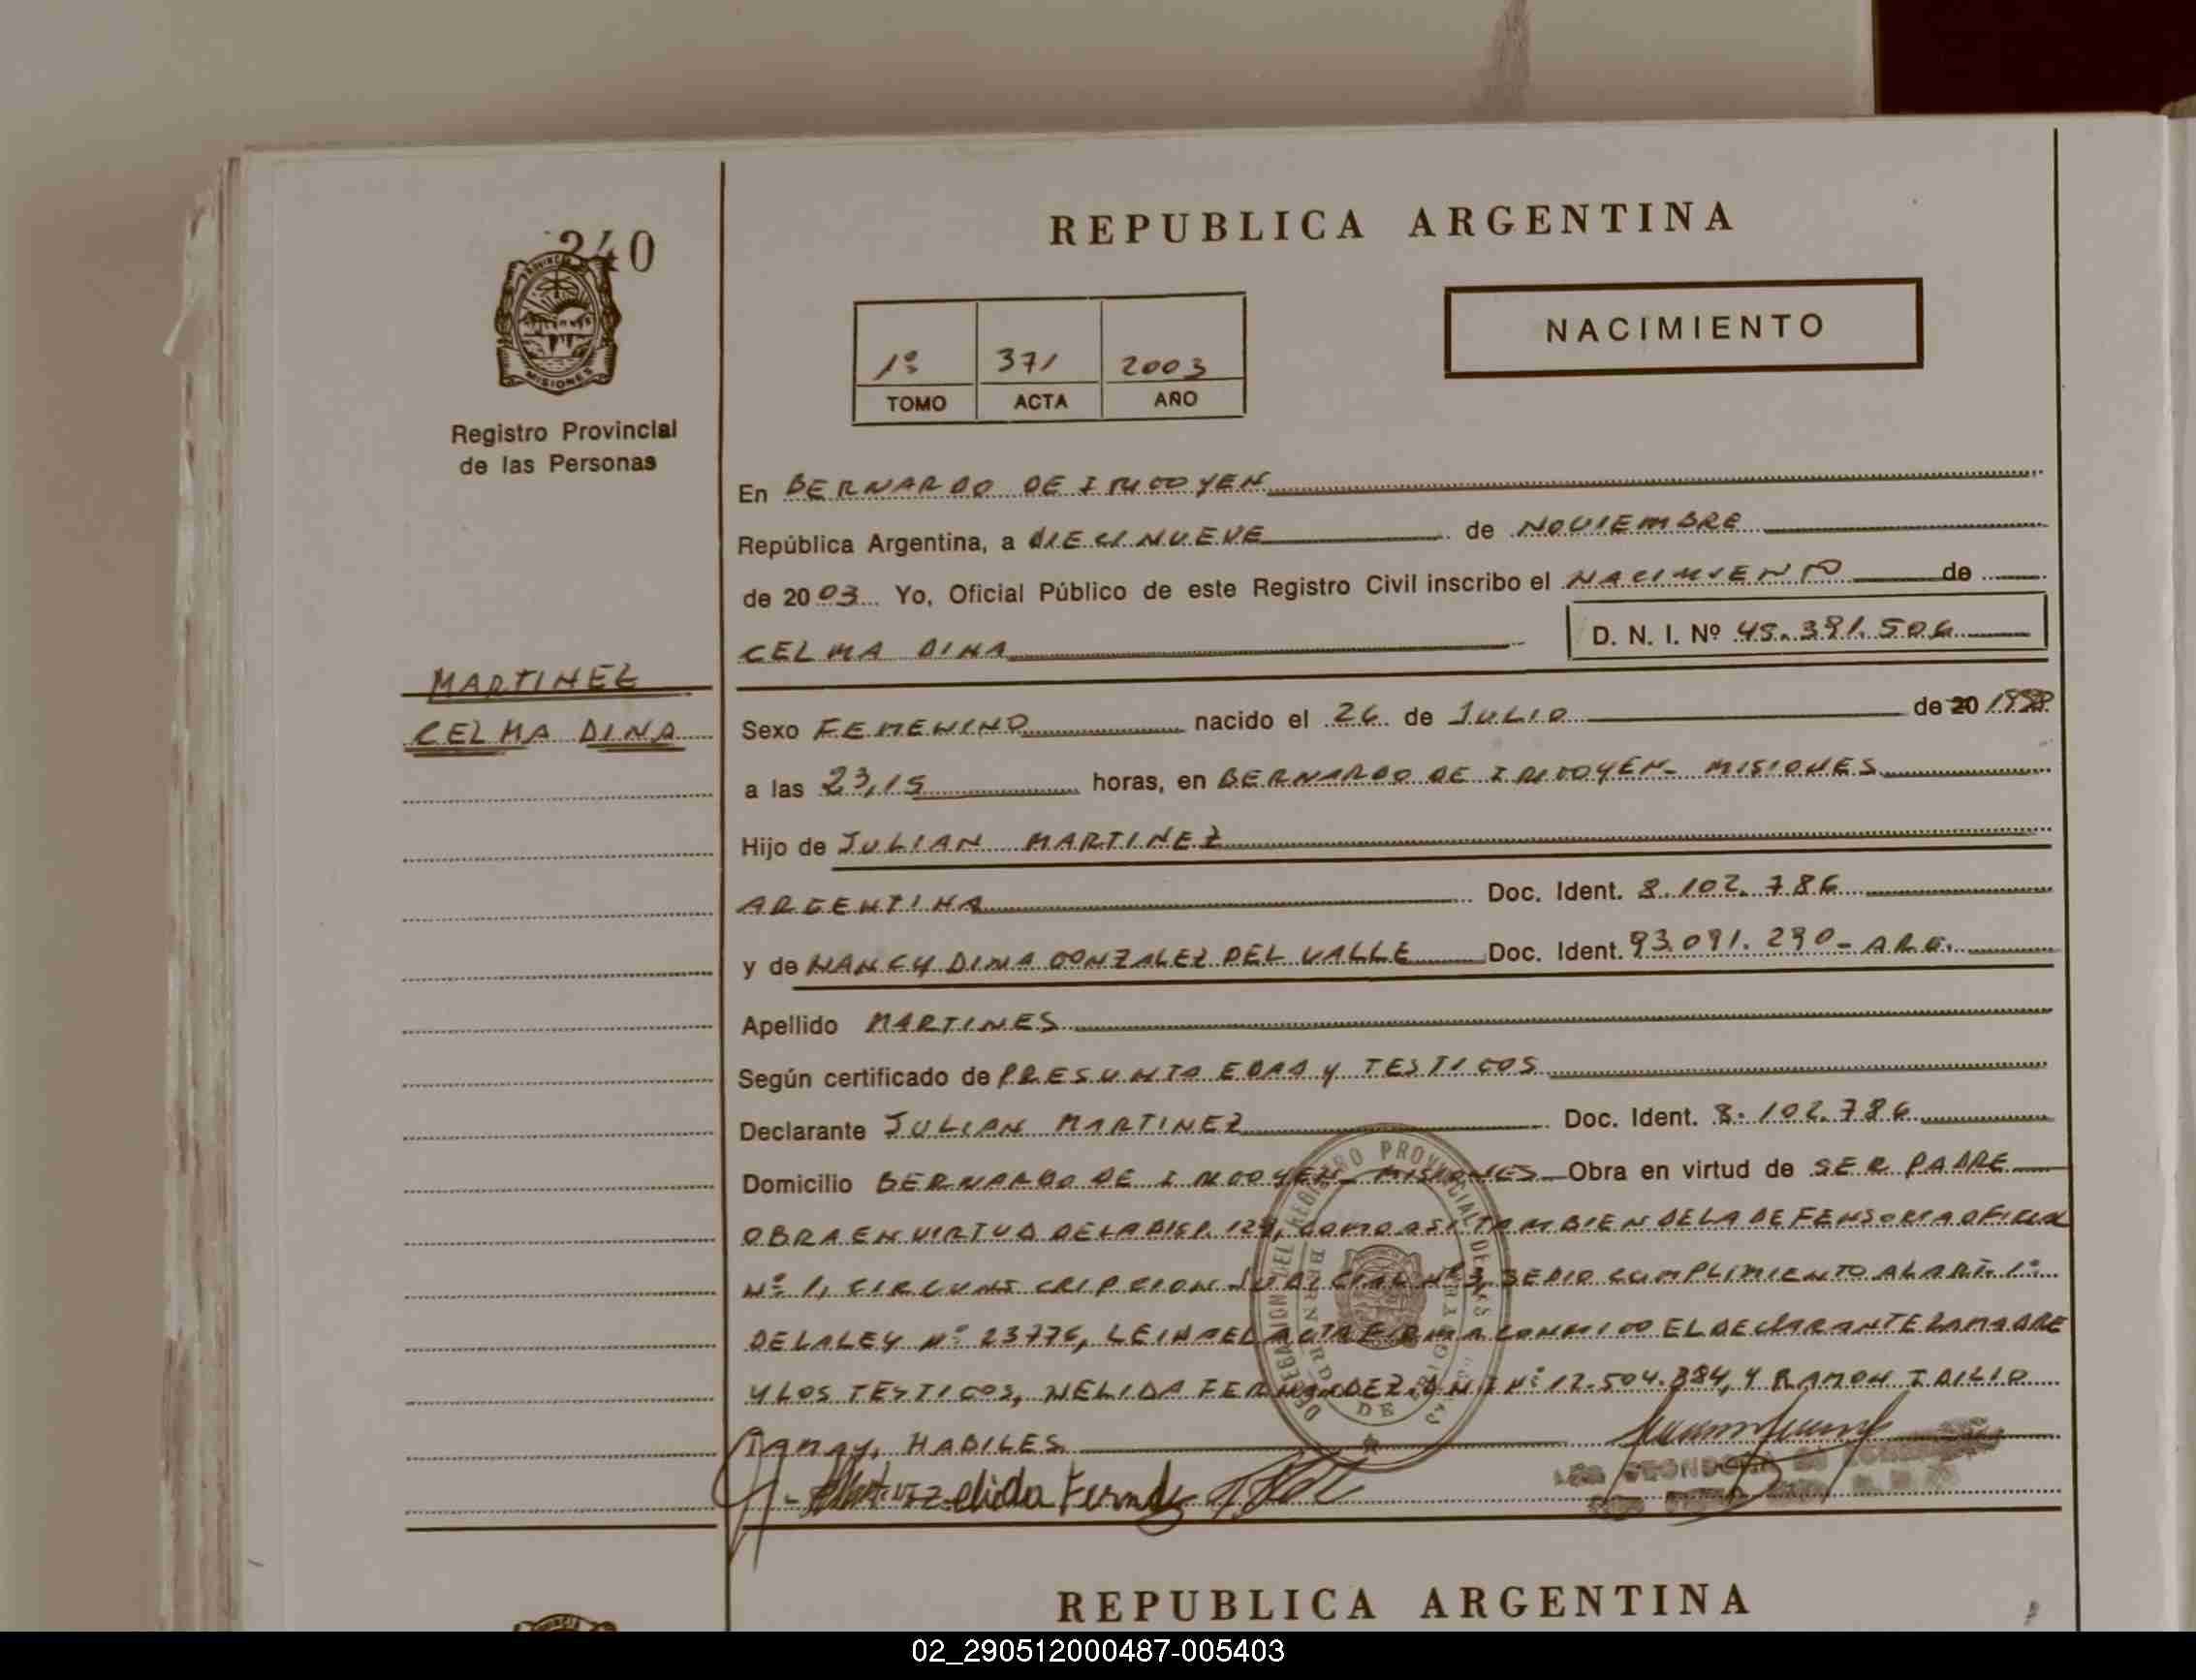 240
PROVINCIA DE
MISIONES
Registro Provincial
de las Personas
MARTINEZ
CELMA DINA
REPUBLICA ARGENTINA
1º 371 2003
TOMO ACTA AÑO
NACIMIENTO
En BERNARDO DE IRIGOYEN
República Argentina, a DIECINUEVE de NOVIEMBRE
de 2003 Yo, Oficial Público de este Registro Civil inscribo el NACIMIENTO de
CELMA DINA D. N. I. Nº 45.391.506
Sexo FEMENINO nacido el 26 de JULIO de 20
a las 23,15 horas, en BERNARDO DE IRIGOYEN - MISIONES
Hijo de JULIAN MARTINEZ
ARGENTINA Doc. Ident. 8.102.786
y de NANCY DINA GONZALEZ DEL VALLE Doc. Ident. 93.091.290 - ARG.
Apellido MARTINES
Según certificado de PRESUNTA EDAD Y TESTIGOS
Declarante JULIAN MARTINEZ Doc. Ident. 8.102.786
Domicilio BERNARDO DE IRIGOYEN - MISIONES Obra en virtud de SER PADRE
OBRA EN VIRTUD DE LA DISP. 124, COMO ASI TAMBIEN DE LA DEFENSORIA OFICIAL
Nº 1, CIRCUNSCRIPCION JUDICIAL Nº 3, SE DIO CUMPLIMIENTO AL ART. 1º
DE LA LEY Nº 23776, LEIDA EL ACTA FIRMA CONMIGO EL DECLARANTE LA MADRE
Y LOS TESTIGOS, NELIDA FERNANDEZ DNI Nº 12.504.384, Y RAMON IDILIO
HABILES
DELEGACION DEL REGISTRO PROVINCIAL DE LAS PERSONAS
BERNARDO DE IRIGOYEN
elida Fernade
REPUBLICA ARGENTINA
02_290512000487-005403